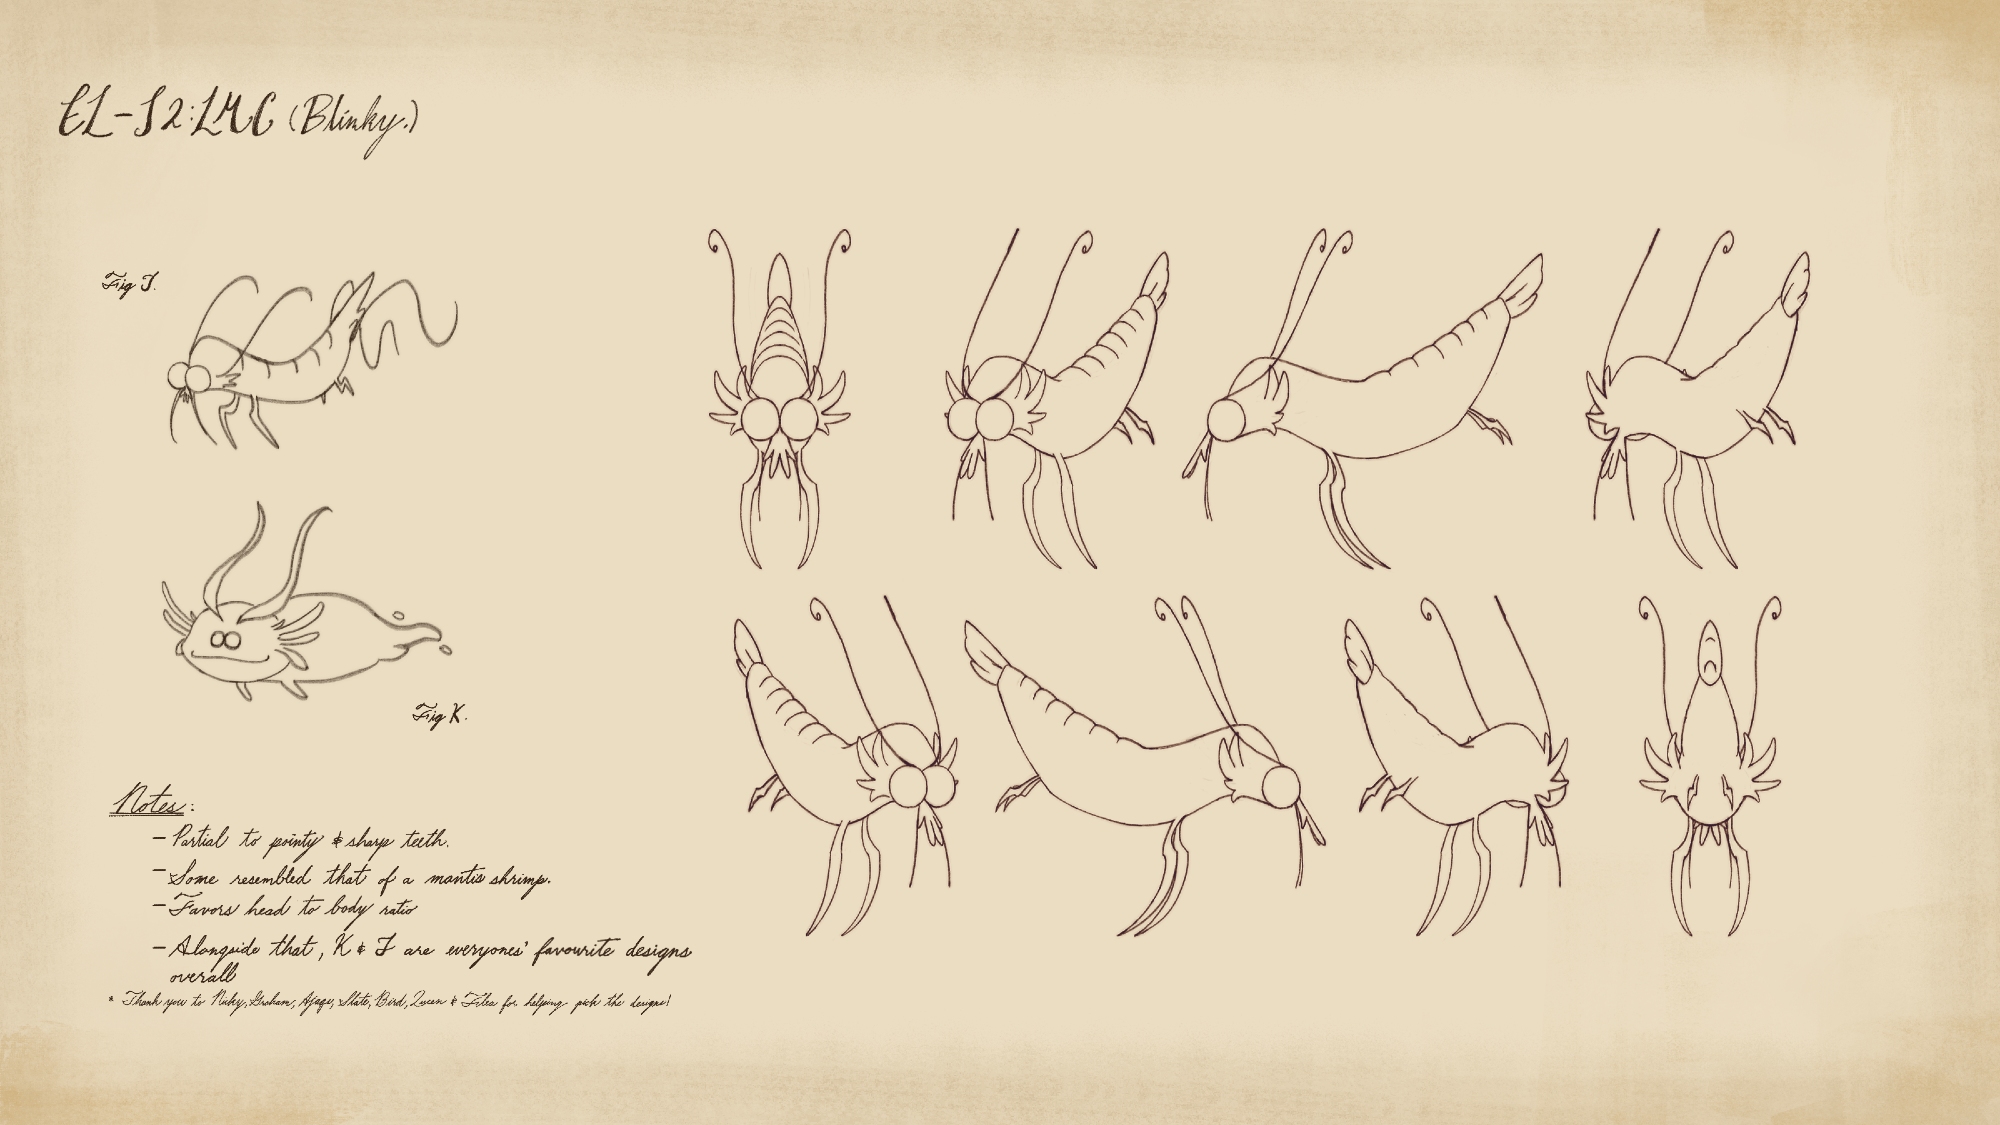 EL-S2:LMC (Blinky.)
Fig J.
Fig K.
Notes:
- Partial to pointy & sharp teeth.
- Some resembled that of a mantis shrimp.
- Favors head to body ratio
- Alongside that, K & J are everyones' favourite designs
overall
* Thank you to Graham, Slate, Bird, Queen & for helping pick the designs!